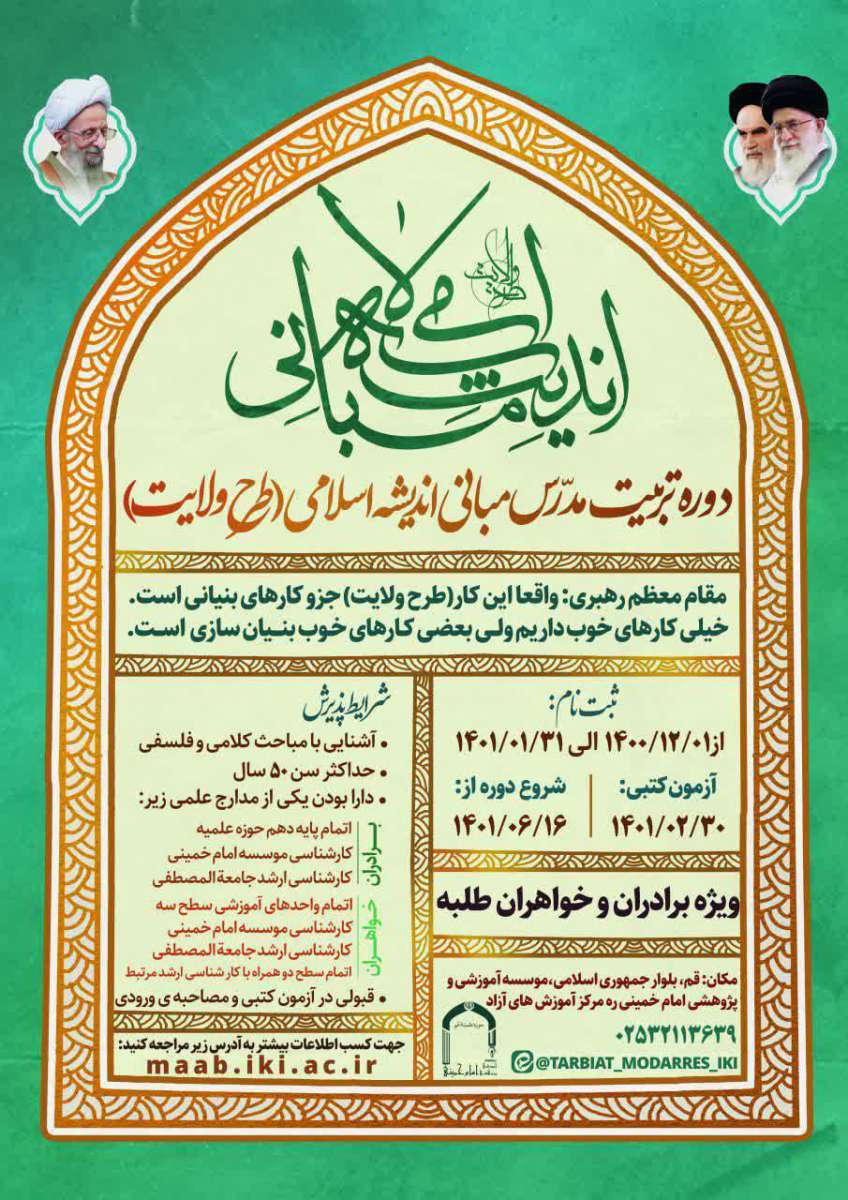 طرح ولایت
مبانی اندیشه اسلامی
دوره تربیت مدرّس مبانی اندیشه اسلامی (طرح ولایت)
مقام معظم رهبری: واقعا این کار(طرح ولایت) جزو کارهای بنیانی است.
خیلی کارهای خوب داریم ولی بعضی کارهای خوب بنیان سازی است.
ثبت نام:
از ۱۴۰۰/۱۲/۰۱ الی ۱۴۰۱/۰۱/۳۱
آزمون کتبی:
۱۴۰۱/۰۲/۳۰
شروع دوره از:
۱۴۰۱/۰۶/۱۶
ویژه برادران و خواهران طلبه
مکان: قم، بلوار جمهوری اسلامی، موسسه آموزشی و
پژوهشی امام خمینی ره مرکز آموزش های آزاد
۰۲۵۳۲۱۱۳۶۳۹
@TARBIAT_MODARRES_IKI
شرایط پذیرش
• آشنایی با مباحث کلامی و فلسفی
• حداکثر سن ۵۰ سال
• دارا بودن یکی از مدارج علمی زیر:
برادران
اتمام پایه دهم حوزه علمیه
کارشناسی موسسه امام خمینی
کارشناسی ارشد جامعة المصطفی
خواهران
اتمام واحدهای آموزشی سطح سه
کارشناسی موسسه امام خمینی
کارشناسی ارشد جامعة المصطفی
اتمام سطح دو همراه با کارشناسی ارشد مرتبط
• قبولی در آزمون کتبی و مصاحبه ی ورودی
جهت کسب اطلاعات بیشتر به آدرس زیر مراجعه کنید:
maab.iki.ac.ir